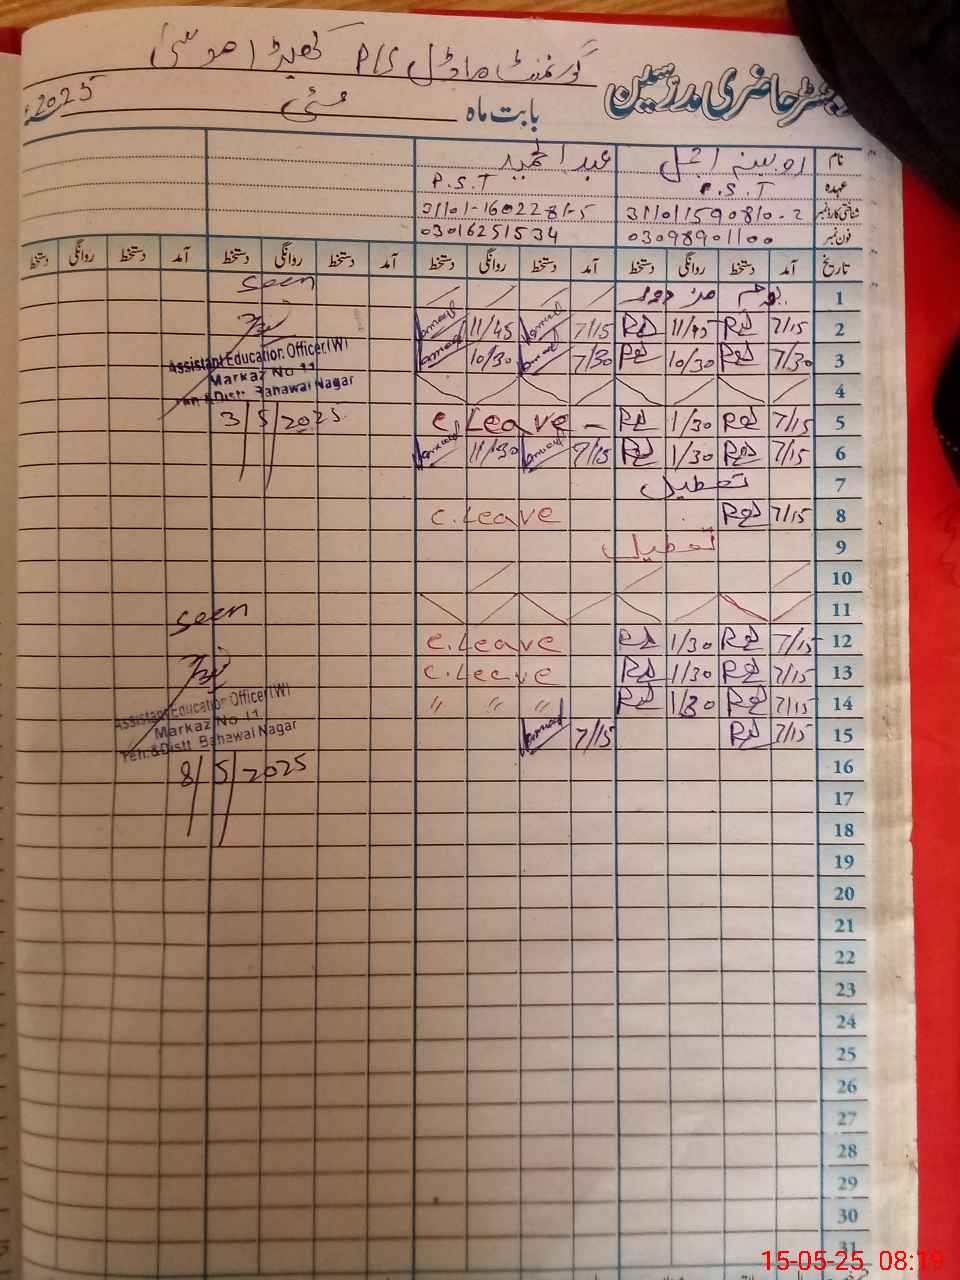 گورنمنٹ ماڈل P/S کھیڑا موسیٰ
رجسٹر حاضری مدرسین
بابت ماہ مئی 2025ء
نام روبینہ اجمل عبدالحمید
عہدہ P.S.T P.S.T
شناختی کارڈ نمبر 311011590810-2 31101-1602281-5
فون نمبر 03098901100 03016251534
تاریخ آمد دستخط روانگی دستخط آمد دستخط روانگی دستخط آمد دستخط روانگی دستخط آمد دستخط روانگی دستخط
1 یوم مزدور seen
2 7/15 11/45 7/15 11/45
3 7/30 10/30 7/30 10/30
Assistant Education Officer (W)
Markaz No 11
Teh & Distt. Bahawal Nagar
4
5 7/15 1/30 c. Leave 3/5/2025
6 7/15 1/30 7/15 11/30
7 تعطیل
8 7/15 c. Leave
9 تعطیل
10
11 seen
12 7/15 1/30 c. Leave
13 7/15 1/30 c. Leave
14 7/15 1/30 〃 〃 〃
Assistant Education Officer (W)
Markaz No 11
Teh. & Distt. Bahawal Nagar
15 7/15 7/15
16 8/5/2025
17
18
19
20
21
22
23
24
25
26
27
28
29
30
31
15-05-25 08:19